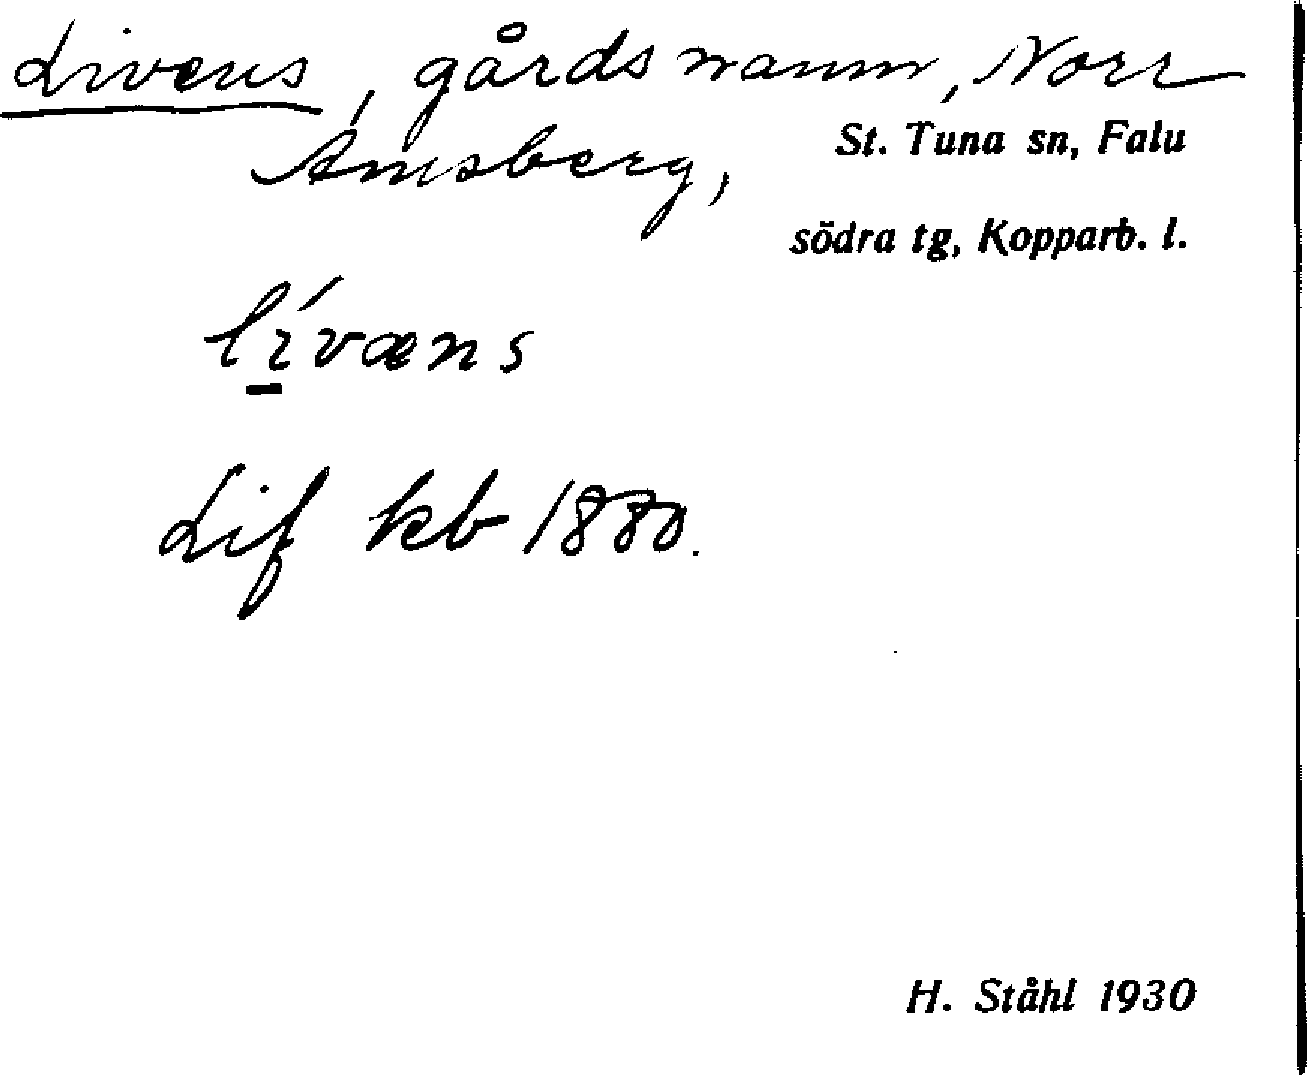 Livens, gårdsnamn, Norr
Amsberg,
St. Tuna sn, Falu
södra tg, Kopparb. l.
lı̱́væns
Lif kb 1880.
H. Ståhl 1930